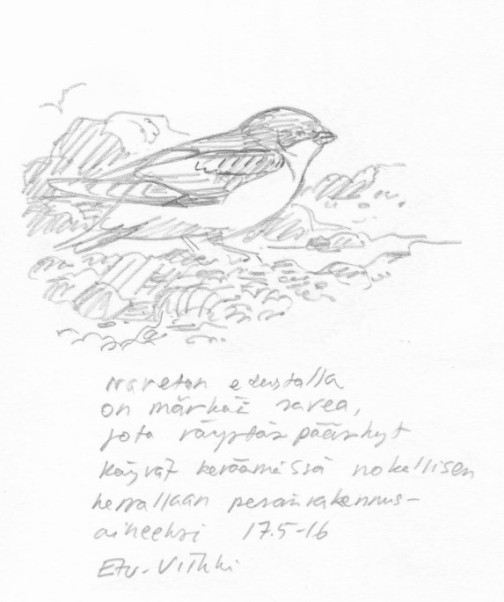 navetan edustalla
on märkää savea,
jota räystäspääskyt
käyvät keräämässä nokallisen
kerrallaan pesänrakennus-
aineeksi 17.5-16
Etu-Viikki